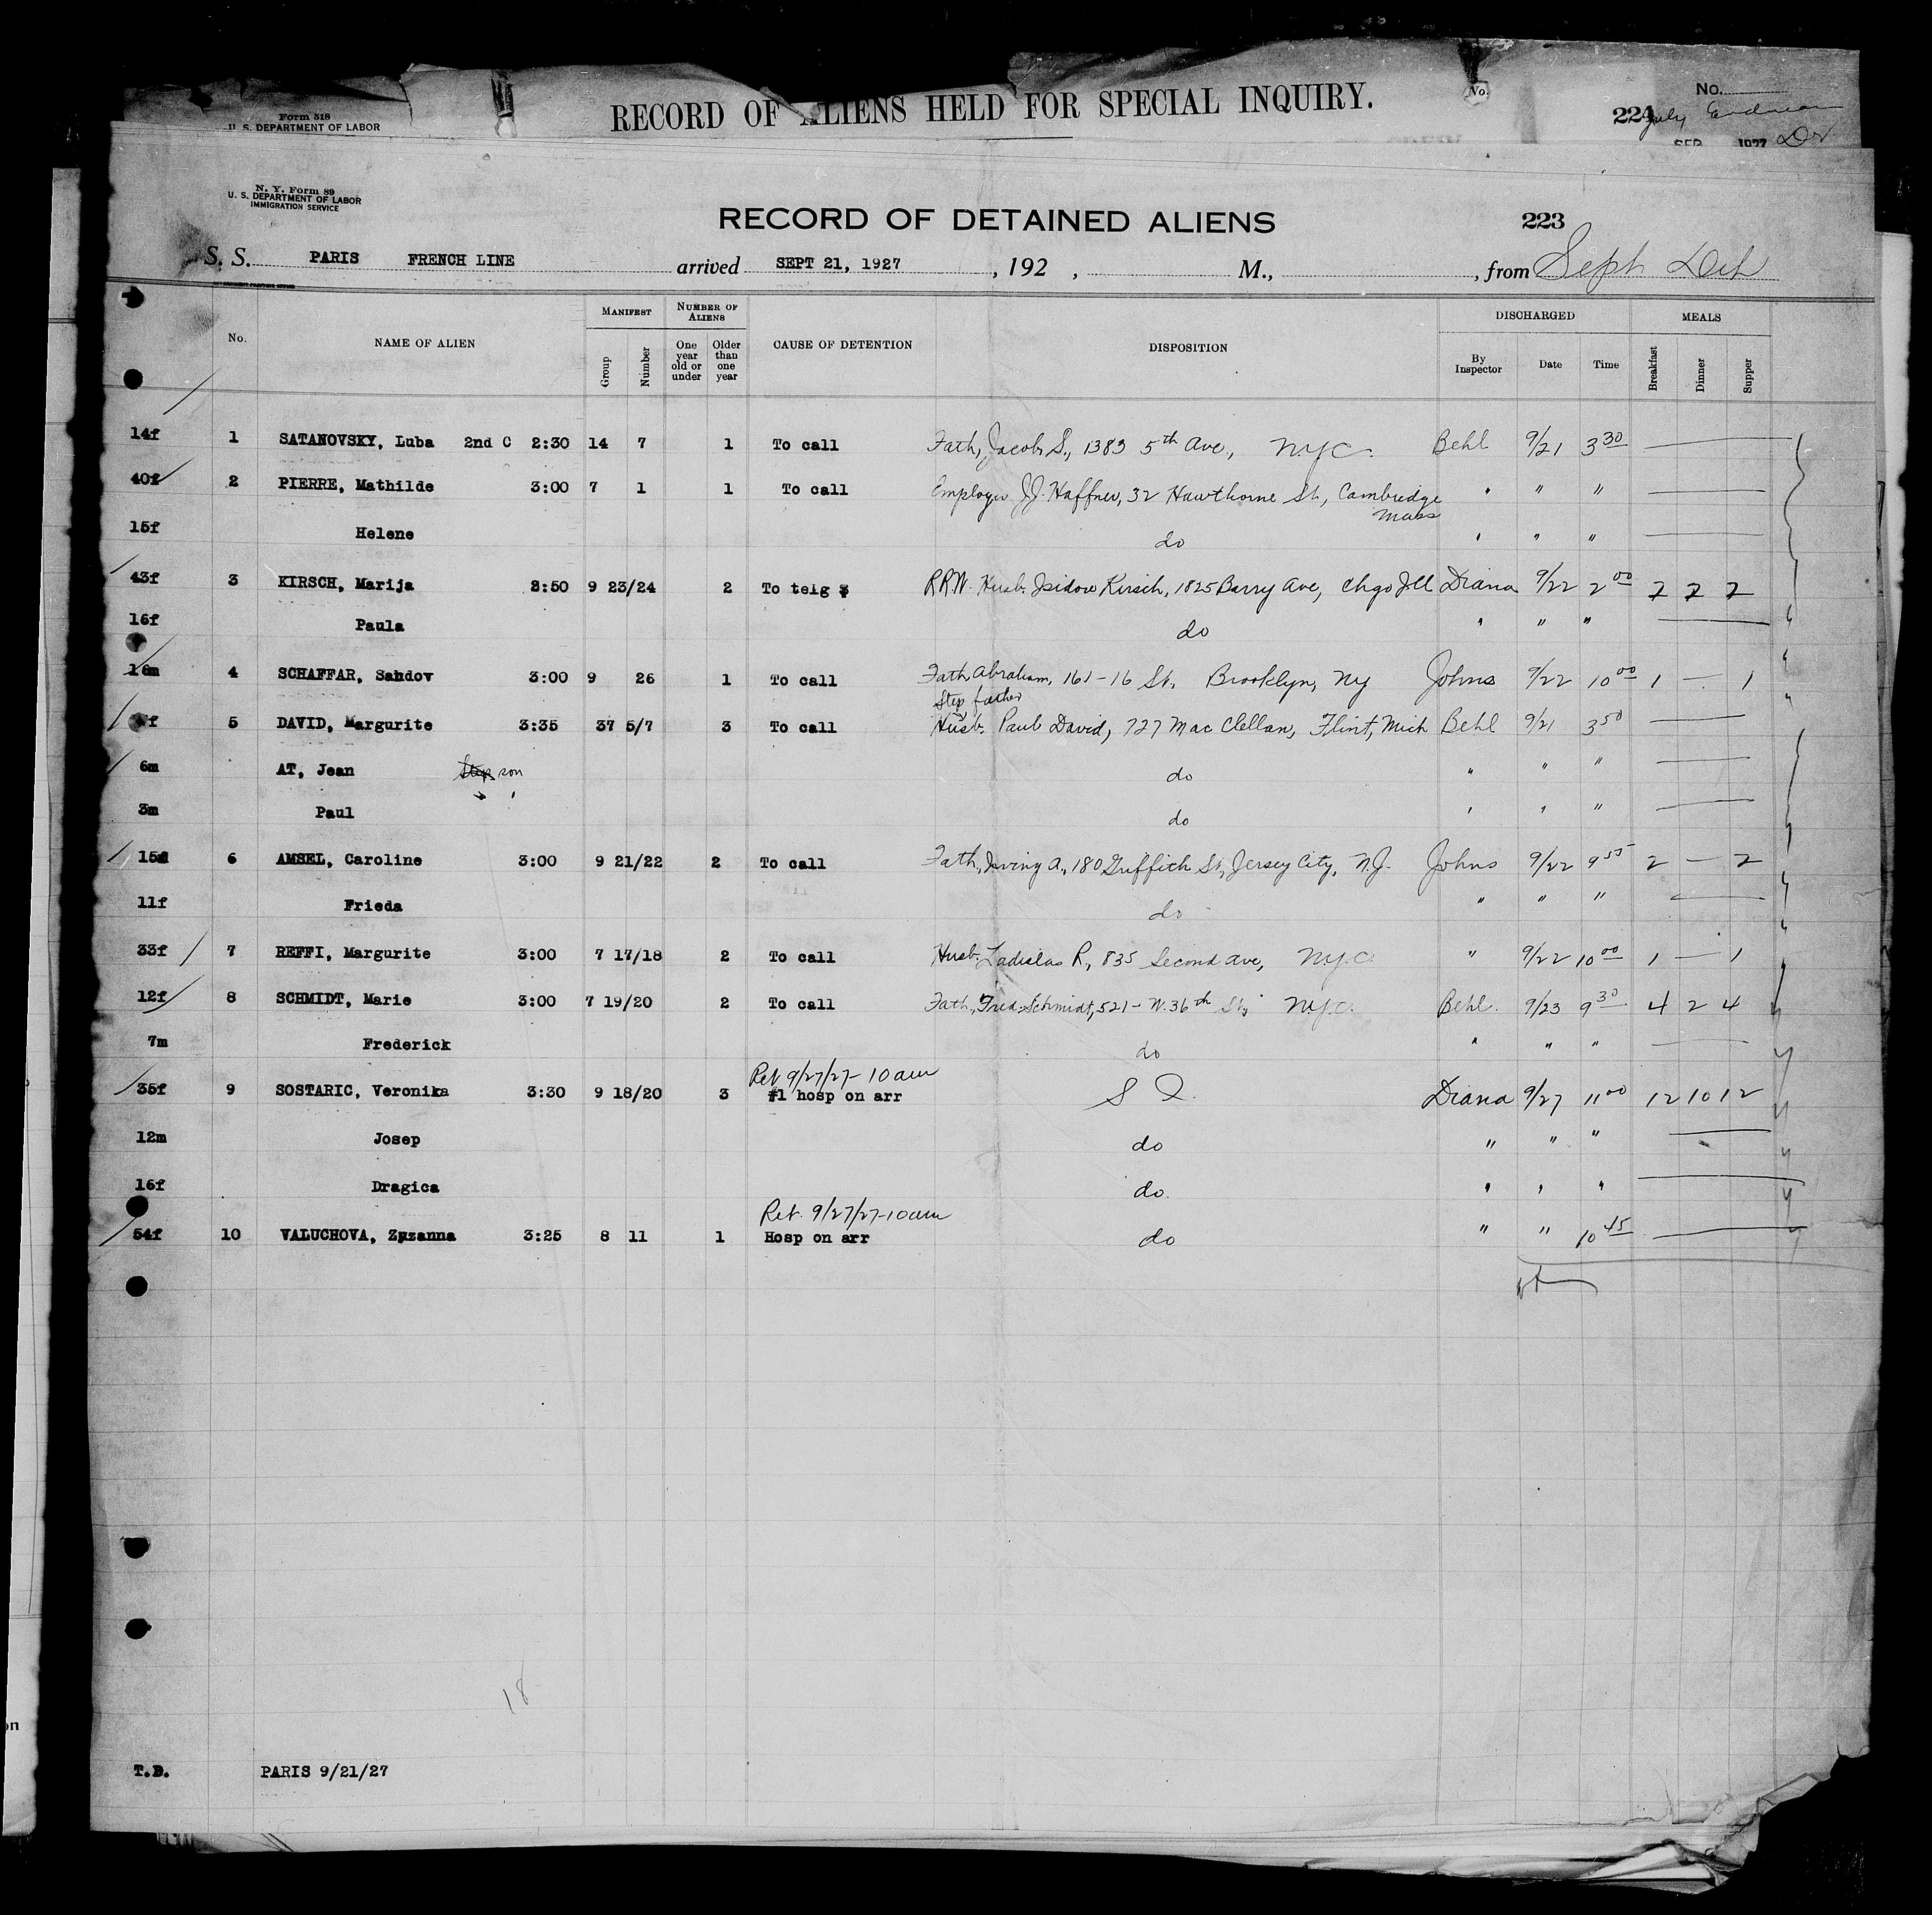 Form 518
U. S. DEPARTMENT OF LABOR
RECORD OF ALIENS HELD FOR SPECIAL INQUIRY.
No.
No.
224
SEP 1927
N. Y. Form 89
U. S. DEPARTMENT OF LABOR
IMMIGRATION SERVICE
RECORD OF DETAINED ALIENS
223
S. S. PARIS FRENCH LINE arrived SEPT 21, 1927, 192 , M., , from Sept Det
No. NAME OF ALIEN MANIFEST NUMBER OF ALIENS CAUSE OF DETENTION DISPOSITION DISCHARGED MEALS
Group Number One year old or under Older than one year By Inspector Date Time Breakfast Dinner Supper
14f 1 SATANOVSKY, Luba 2nd C 2:30 14 7 1 To call Fath, Jacob S., 1383 5th Ave., N.Y.C. Behl 9/21 3 30
40f 2 PIERRE, Mathilde 3:00 7 1 1 To call Employer J.J. Haffner, 32 Hawthorne St, Cambridge Mass " " "
15f Helene do " " "
43f 3 KIRSCH, Marija 2:50 9 23/24 2 To telg $ RRW Husb. Isidow Kirsch, 1825 Barry Ave, Chgo Ill Diana 9/22 2 00 2 2 2
16f Paula do " " "
16m 4 SCHAFFAR, Sandov 3:00 9 26 1 To call Fath Abraham, 161-16 St, Brooklyn, Ny Johns 9/22 10 00 1 — 1
Step father
f 5 DAVID, Margurite 3:35 37 5/7 3 To call Husb. Paul David, 727 Mac Clellan, Flint, Mich Behl 9/21 3 50
6m AT, Jean Step son do " " "
3m Paul " " do " " "
15f 6 AMSEL, Caroline 3:00 9 21/22 2 To call Fath, Irving A., 180 Griffith St, Jersey City, N.J. Johns 9/22 9 55 2 — 2
11f Frieda do " " "
33f 7 REFFI, Margurite 3:00 7 17/18 2 To call Husb. Ladislas R., 835 Second Ave, N.Y.C. " 9/22 10 00 1 — 1
12f 8 SCHMIDT, Marie 3:00 7 19/20 2 To call Fath, Fred Schmidt, 521- W. 36th St, N.Y.C. Behl. 9/23 9 30 4 2 4
7m Frederick do " " "
Ret 9/27/27- 10 am
35f 9 SOSTARIC, Veronika 3:30 9 18/20 3 #1 hosp on arr S I. Diana 9/27 11 00 12 10 12
12m Josep do " " "
16f Dragica do. " " "
Ret. 9/27/27-10 am
54f 10 VALUCHOVA, Zuzanna 3:25 8 11 1 Hosp on arr do " " 10 45
18
T.D. PARIS 9/21/27
on